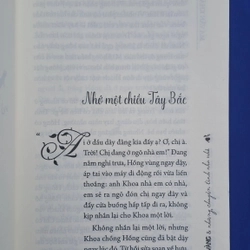 Nhớ một chiều Tây Bắc
Ai ở đâu dây đăng kia đấy ạ? Ơi, chị à.
Trời! Chị đang ở ngõ nhà em!" Đang
nằm nghỉ trưa, Hồng vùng ngay dậy,
áp tai vào máy di động rồi vừa liền
thoắng: anh Khoa nhà em có nhà,
em sẽ ra ngõ đón chị ngay đây và
đẩy cửa buồng hấp tấp đi ra, không
kịp nhắn lại cho Khoa một lời.
Không nhắn lại một lời, nhưng
Khoa chồng Hồng cũng đã bật dậy